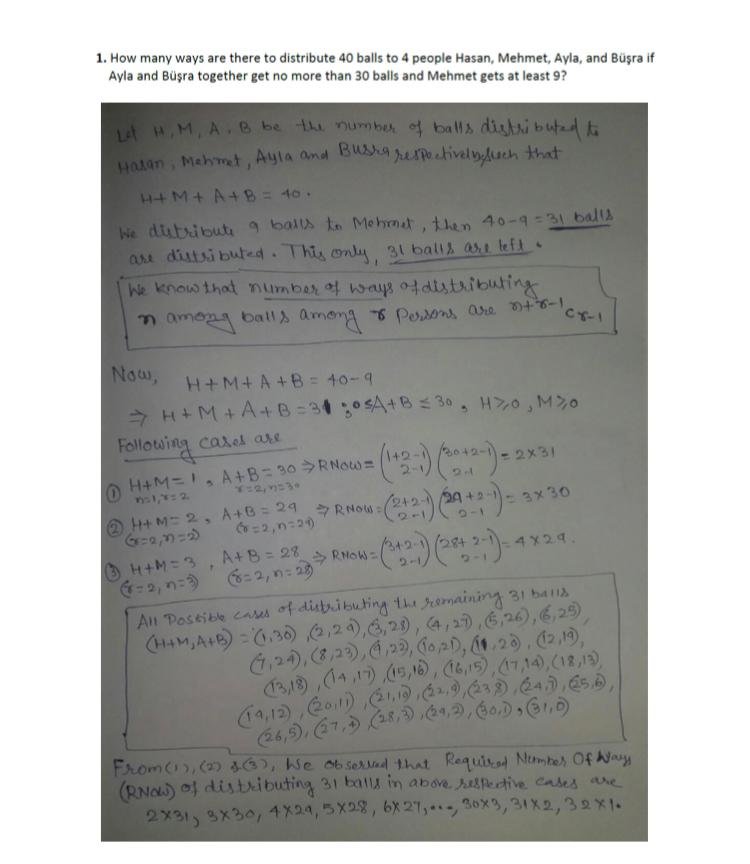 1. How many ways are there to distribute 40 balls to 4 people Hasan, Mehmet, Ayla, and Büşra if
Ayla and Büşra together get no more than 30 balls and Mehmet gets at least 9?
Let H, M, A, B be the number of balls distributed to
Hasan, Mehmet, Ayla and Busra respectively such that
H + M + A + B = 40.
We distribute 9 balls to Mehmet, then 40-9 = 31 balls
are distributed. This only, 31 balls are left.
We know that number of ways of distributing
n among balls among r Persons are n+r-1 C r-1
Now, H+M+A+B = 40-9
⇒ H+M+A+B = 31 ; 0≤A+B ≤ 30, H≥0, M≥0
Following cases are
① H+M = 1, A+B = 30 ⇒ RNow = (1+2-1 2-1) (30+2-1 2-1) = 2×31
n=1, r=2 r=2, n=30
② H+M = 2, A+B = 29 ⇒ RNOW = (2+2-1 2-1) (29+2-1 2-1) = 3×30
(r=2, n=2) (r=2, n=29)
③ H+M = 3, A+B = 28 ⇒ RNOW = (3+2-1 2-1) (28+2-1 2-1) = 4×29.
(r=2, n=3) (r=2, n=28)
All Possible cases of distributing the remaining 31 balls
(H+M, A+B) = (1,30), (2,29), (3,28), (4,27), (5,26), (6,25),
(7,24), (8,23), (9,22), (10,21), (11,20), (12,19),
(13,18), (14,17), (15,16), (16,15), (17,14), (18,13),
(19,12), (20,11), (21,10), (22,9), (23,8), (24,7), (25,6),
(26,5), (27,4), (28,3), (29,2), (30,1), (31,0)
From (1), (2) & (3), We observed that Required Number Of Ways
(RNow) of distributing 31 balls in above respective cases are
2×31, 3×30, 4×29, 5×28, 6×27, ..., 30×3, 31×2, 32×1.